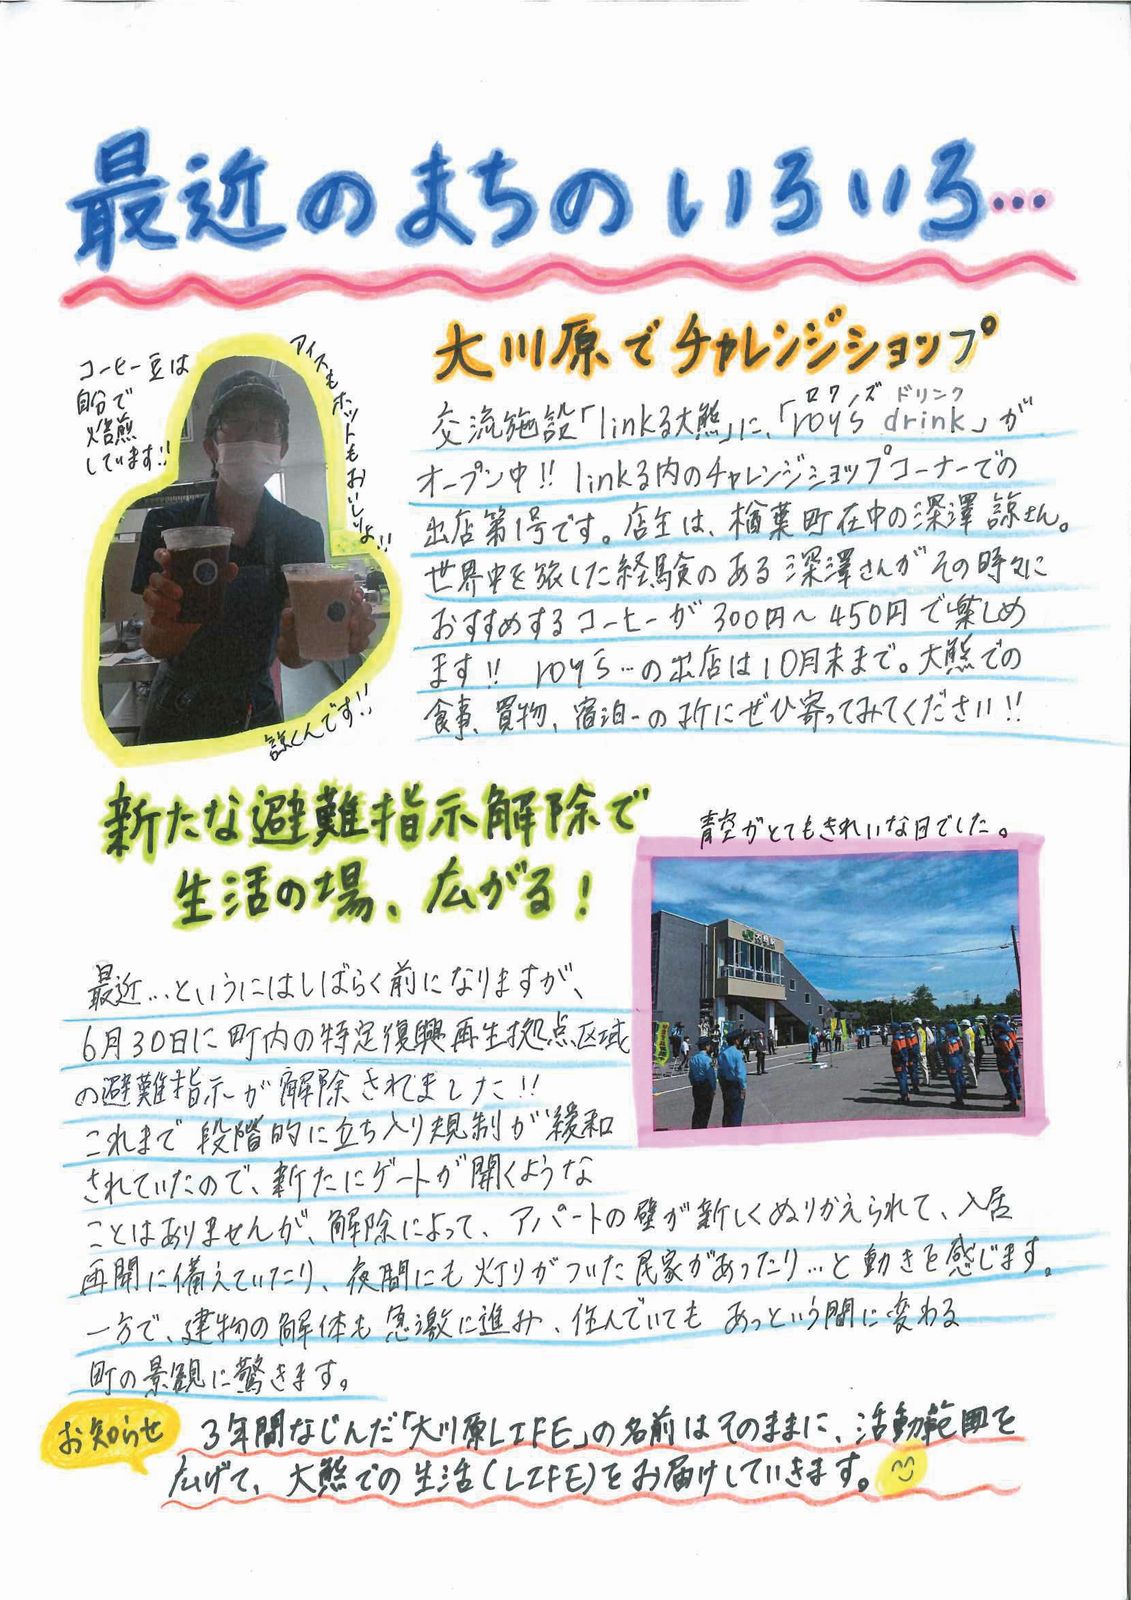 最近のまちのいろいろ…
コーヒー豆は
自分で
焙煎
しています!!
アイスもホットもおいしいよ!!
諒くんです!!
大川原でチャレンジショップ
ロイズ ドリンク
交流施設「linkる大熊」に、「roy's drink」が
オープン中!! linkる内のチャレンジショップコーナーでの
出店第1号です。店主は、楢葉町在中の深澤 諒さん。
世界中を旅した経験のある深澤さんがその時々に
おすすめするコーヒーが300円〜450円で楽しめ
ます!! roy's…の出店は10月末まで。大熊での
食事、買物、宿泊…の折にぜひ寄ってみてください!!
新たな避難指示解除で
生活の場、広がる!
青空がとてもきれいな日でした。
最近…というにはしばらく前になりますが、
6月30日に町内の特定復興再生拠点区域
の避難指示が解除されました!!
これまで段階的に立ち入り規制が緩和
されていたので、新たにゲートが開くような
ことはありませんが、解除によって、アパートの壁が新しくぬりかえられて、入居
再開に備えていたり、夜間にも灯りがついた民家があったり…と動きを感じます。
一方で、建物の解体も急激に進み、住んでいてもあっという間に変わる
町の景観に驚きます。
お知らせ
3年間なじんだ「大川原LIFE」の名前はそのままに、活動範囲を
広げて、大熊での生活(LIFE)をお届けしていきます。